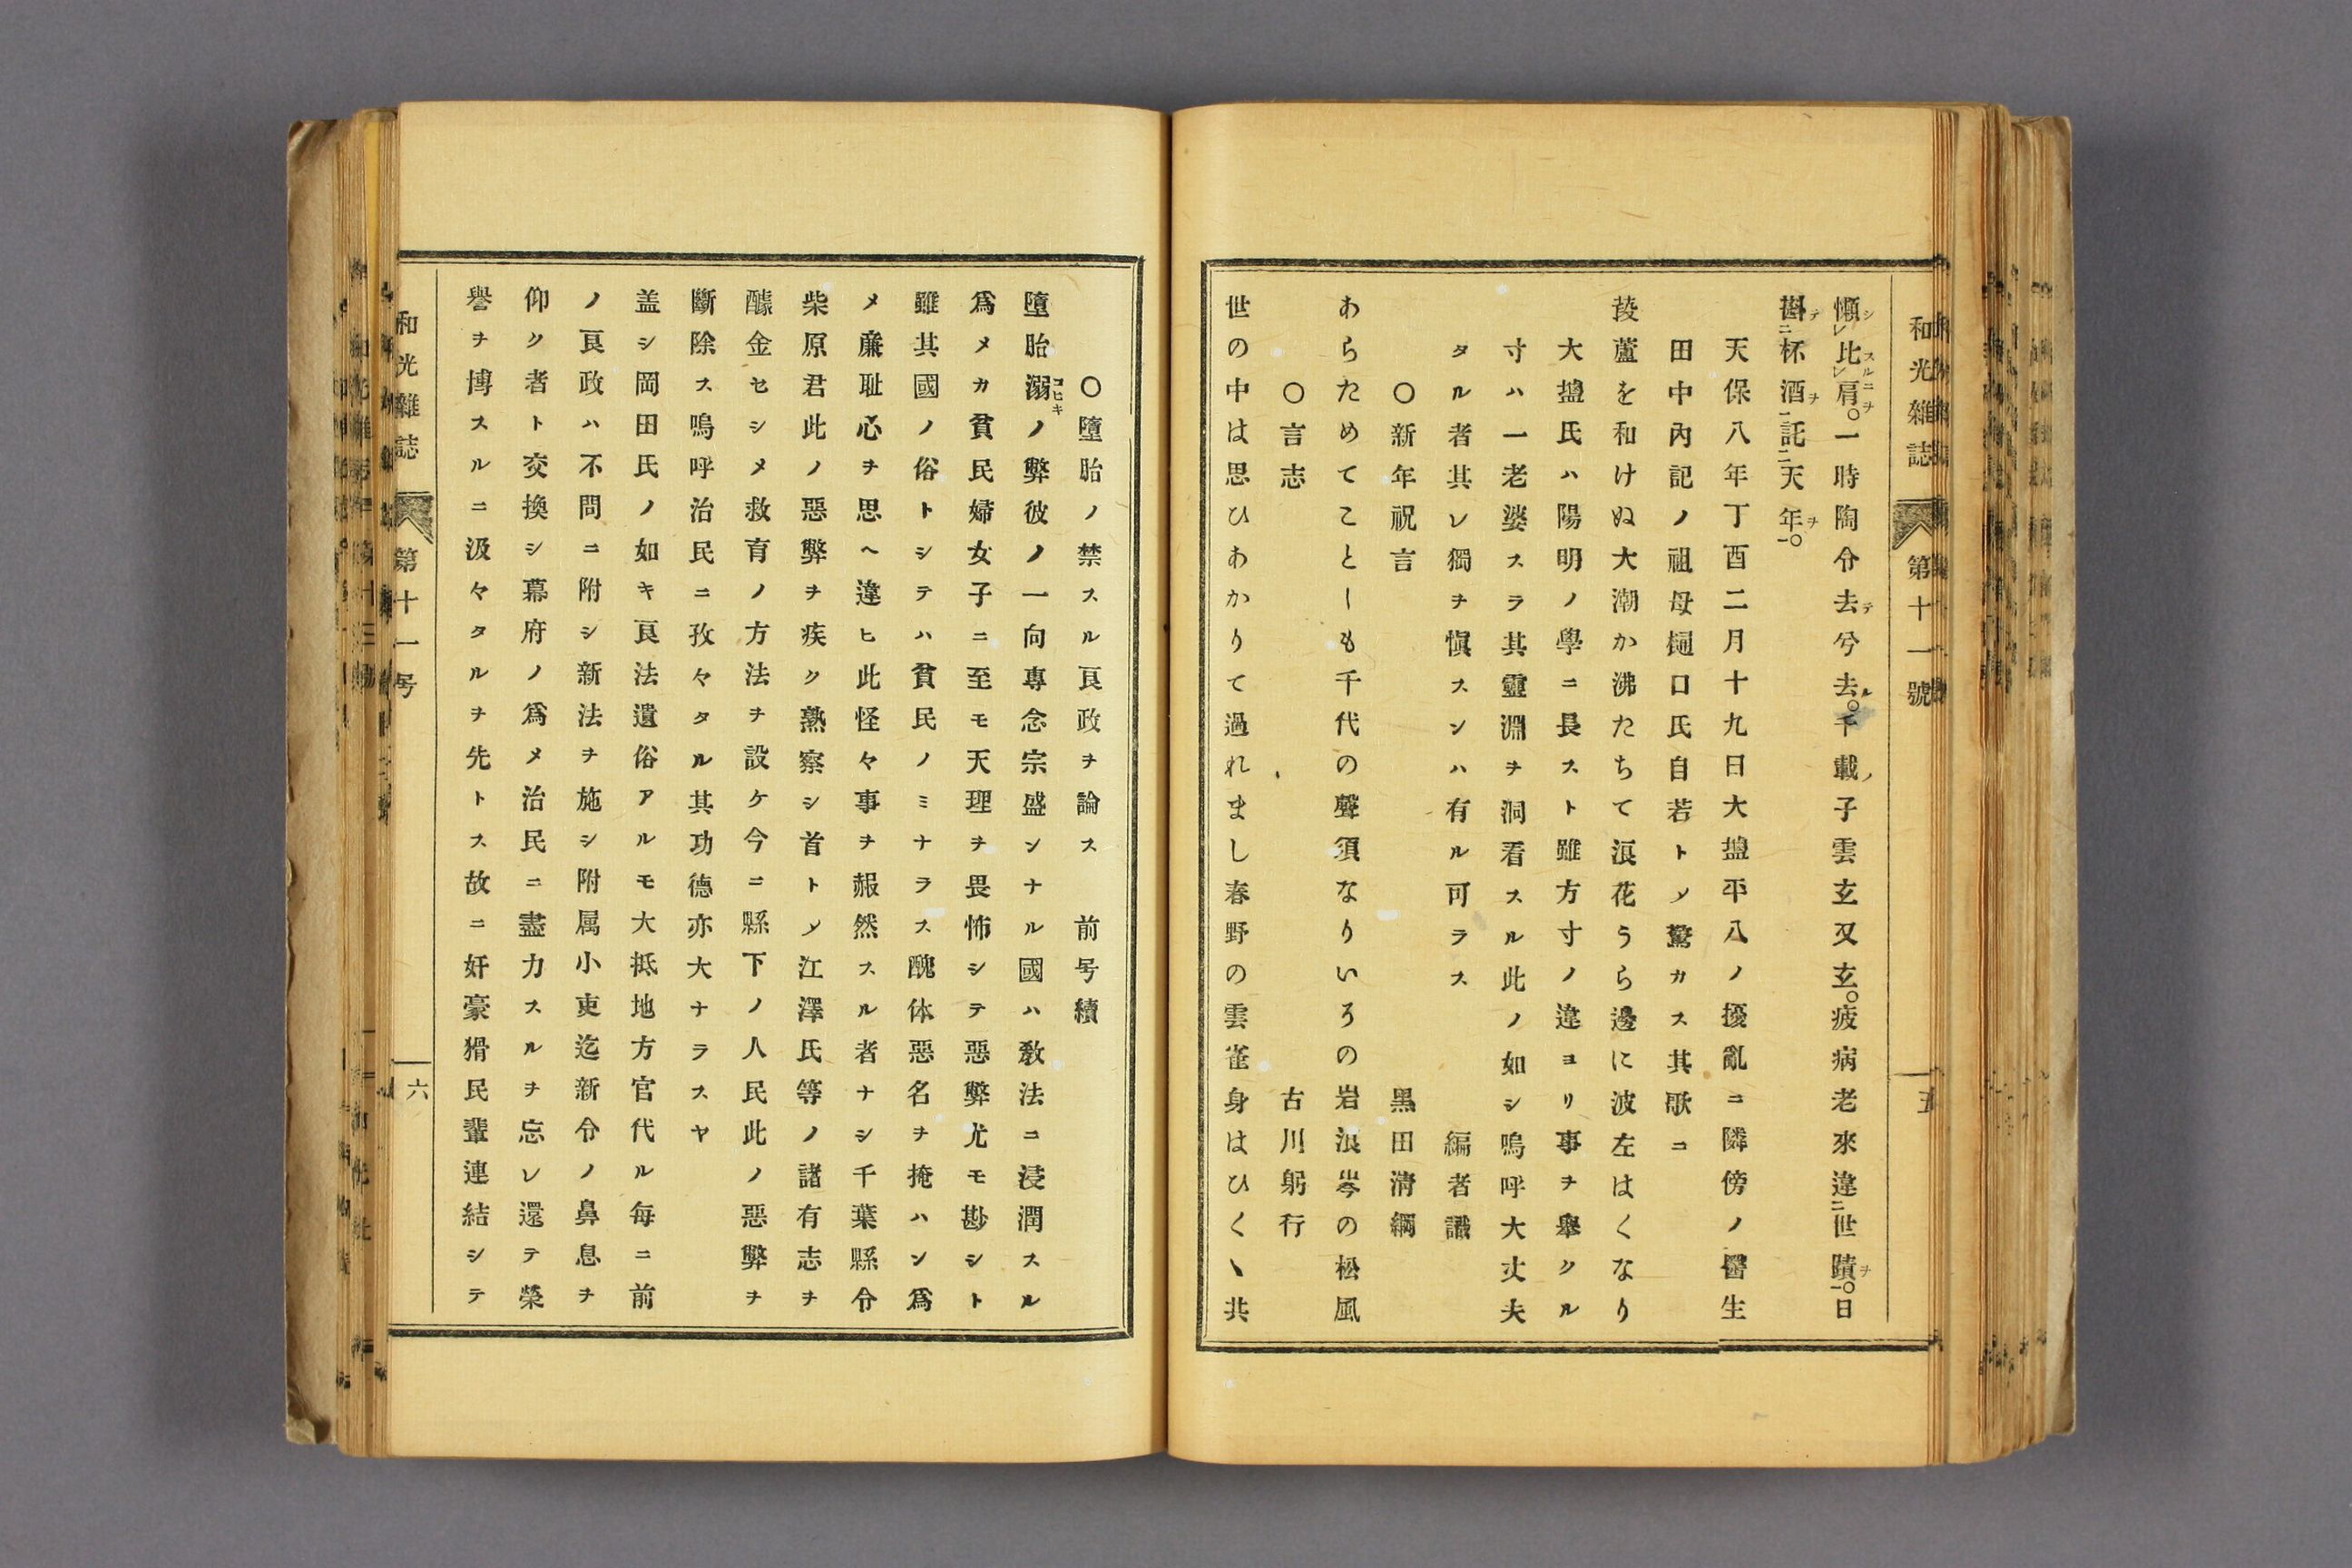 和光雜誌 第十一號 五
懶シレ比スルニレ肩ヲ。一時陶令去テ兮去ル。千載ノ子雲玄又玄。疲病老來違二世蹟ヲ一。日
斟テ二杯酒ヲ一託二天年ヲ一。
天保八年丁酉二月十九日大盬平八ノ擾亂ニ隣傍ノ醫生
田中內記ノ祖母樋口氏自若トメ驚カス其歌ニ
葭蘆を和けぬ大潮か沸たちて浪花うら邊に波左はくなり
大盬氏ハ陽明ノ學ニ長スト雖方寸ノ違ヨリ事ヲ擧クル
寸ハ一老婆スラ其靈淵ヲ洞看スル此ノ如シ嗚呼大丈夫
タル者其レ獨ヲ愼スンハ有ル可ラス 編者識
○新年祝言 黑田淸綱
あらためてことしも千代の聲須なりいろの岩浪岑の松風
○言志 古川躬行
世の中は思ひあかりて過れまし春野の雲雀身はひくヽ共
○墮胎ノ禁スル良政ヲ論ス 前号續
墮胎溺コヒキノ弊彼ノ一向專念宗盛ンナル國ハ敎法ニ浸潤スル
爲メカ貧民婦女子ニ至モ天理ヲ畏怖シテ惡弊尤モ尠シト
雖其國ノ俗トシテハ貧民ノミナラス醜体惡名ヲ掩ハン爲
メ廉耻心ヲ思ヘ違ヒ此怪々事ヲ赧然スル者ナシ千葉縣令
柴原君此ノ惡弊ヲ疾ク熟察シ首トメ江澤氏等ノ諸有志ヲ
醵金セシメ救育ノ方法ヲ設ケ今ニ縣下ノ人民此ノ惡弊ヲ
斷除ス嗚呼治民ニ孜々タル其功德亦大ナラスヤ
盖シ岡田氏ノ如キ良法遺俗アルモ大抵地方官代ル每ニ前
ノ良政ハ不問ニ附シ新法ヲ施シ附属小吏迄新令ノ鼻息ヲ
仰ク者ト交換シ幕府ノ爲メ治民ニ盡力スルヲ忘レ還テ榮
譽ヲ博スルニ汲々タルヲ先トス故ニ奸豪猾民輩連結シテ
和光雜誌 第十一号 六